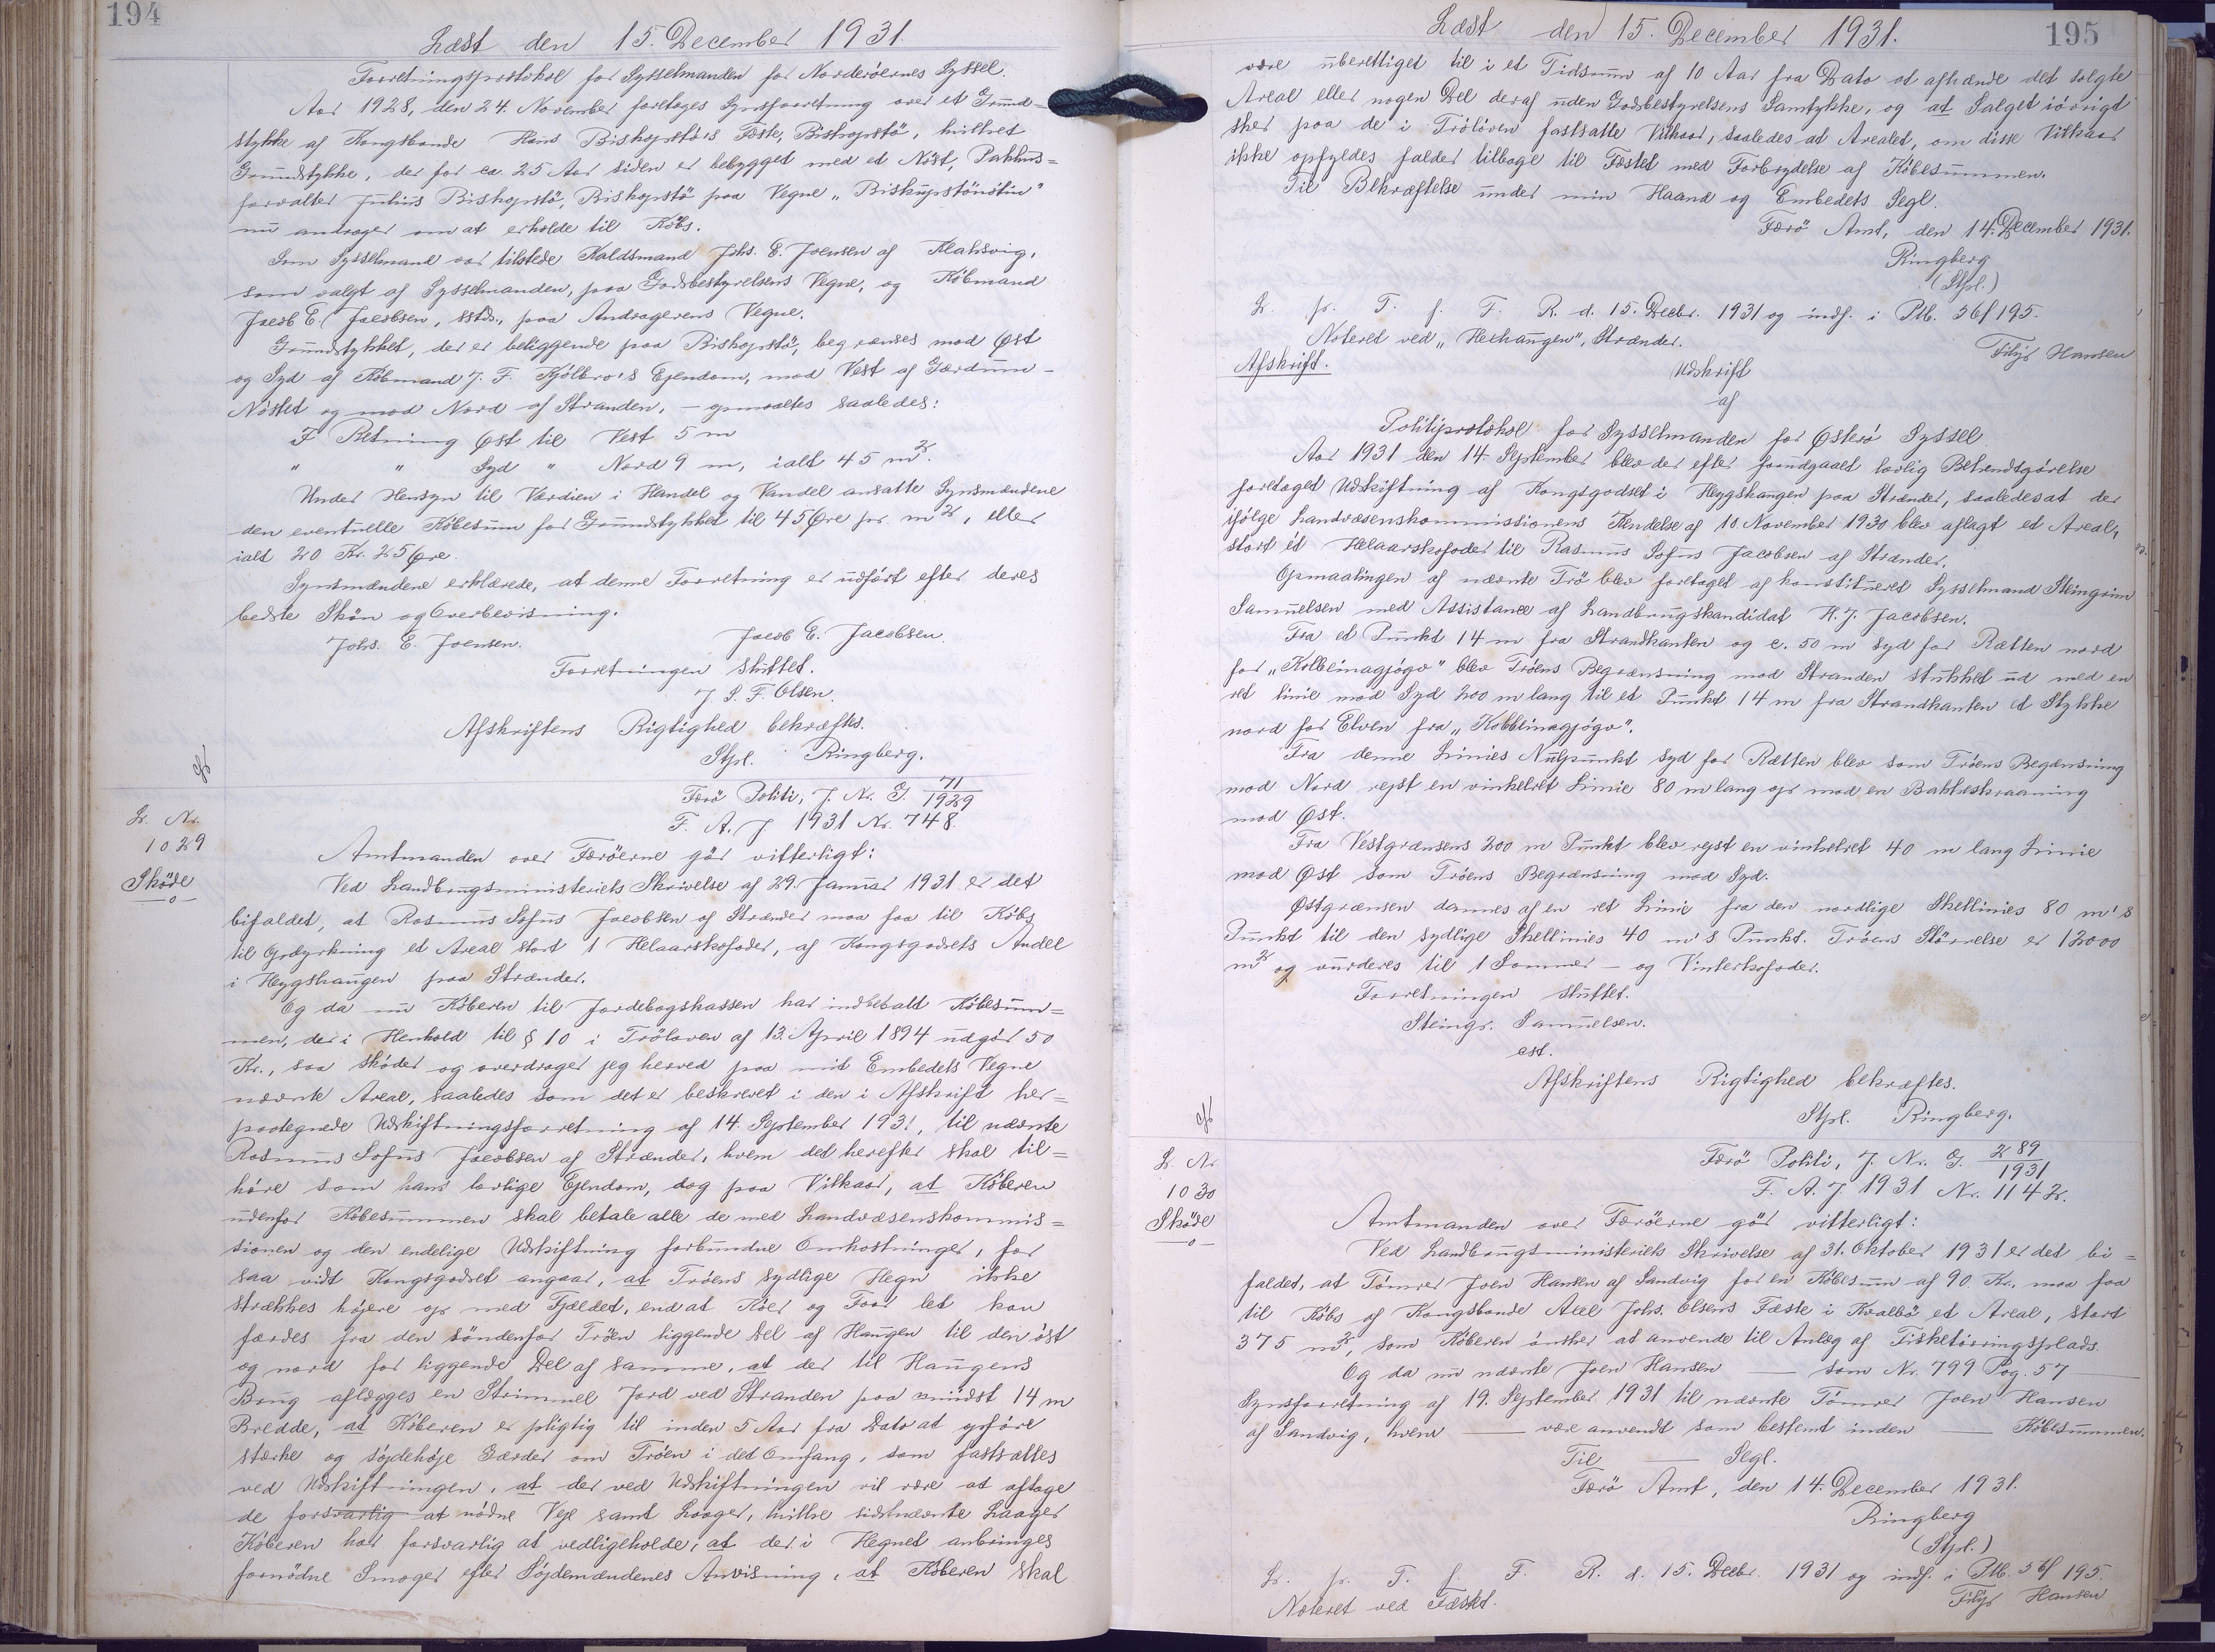 194
Læst den 15. December 1931.
Forretningsprotokol for Sysselmanden for Norderöernes Syssel.
Aar 1928, den 24. November foretoges Synsforretning over et Grund-
stykke af Kongsbonde Hans Bishopstø's Fæste, Bishopstö, hvilket
Grundstykke, der for ca. 25 Aar siden er bebygget med et Nöst, Pakhus=
forvalter Julius Bishopstö, Bishopstö paa Vegne „Biskupstönstue"
nu andrager om at erholde til Köbs.
Som Sysselmand var tilstede Kaldsmand Johs. E. Joensen af Klaksvig,
som valgt af Sysselmanden, paa Godsbestyrelsens Vegne, og Köbmand
Jacob E. Jacobsen, sstds., paa Andragerens Vegne.
Grundstykket, der er beliggende paa Bishopstö, begrænses mod Øst
og Syd af Köbmand J. F. Kjölbro's Ejendom, mod Vest af Gærdum-
Nöstet og mod Nord af Stranden, - opmaaltes saaledes:
I Retning Øst til Vest 5 m
" " Syd " Nord 9 m, ialt 45 m2.
Under Hensyn til Værdien i Handel og Vandel ansatte Synsmændene
den eventuelle Köbesum for Grundstykket til 45 Øre pr. m2, eller
ialt 20 Kr. 25 Øre.
Synsmændene erklærede, at denne Forretning er udført efter deres
bedste Skön og Overbevisning.
Johs. E. Joensen. Jacob E. Jacobsen.
Forretningen sluttet.
J. S. F. Olsen.
Afskriftens Rigtighed bekræftes.
Stpl. Ringberg.
Færö Politi, J. Nr. G. 71/1929
F. A. J 1931 Nr. 748.
L. Nr.
1029
Sköde
Amtmanden over Færöerne gör vitterligt:
Ved Landbrugsministeriets Skrivelse af 29. Januar 1931 er det
bifaldet, at Rasmus Sofus Jacobsen af Strænder maa faa til Köbs
til Opdyrkning et Areal stort 1 Helaarskofoder, af Kongsgodsets Andel
i Heygshaugen paa Strænder.
Og da nu Köberen til Jordebogskassen har indbetalt Köbesum=
men, der i Henhold til § 10 i Trölaven af 13. April 1894 udgör 50
Kr., saa sköder og overdrager jeg herved paa mit Embedets Vegne
nævnte Areal, saaledes som det er beskrevet i den i Afskrift her=
paategnede Udskiftningsforretning af 14. September 1931, til nævnte
Rasmus Sofus Jacobsen af Strænder, hvem det herefter skal til=
höre som hans lovlige Ejendom, dog paa Vilkaar, at Köberen
udenfor Köbesummen skal betale alle de med Landvæsenskommis=
sionen og den endelige Udskiftning forbundne Omkostninger, for
saa vidt Kongsgodset angaar, at Tröens sydlige Hegn ikke
strækkes höjere op mod Fjældet, end at Köer og Faar let kan
færdes fra den söndenfor Tröen liggende Del af Haugen til den öst
og nord for liggende Del af samme, at der til Haugens
Brug aflægges en Strimmel Jord ved Stranden paa mindst 14 m
Bredde, at Köberen er pligtig til inden 5 Aar fra Dato at opföre
stærke og söjdehöje Gærder om Tröen i det Omfang, som fastsættes
ved Udskiftningen, at der ved Udskiftningen vil være at aftage
de forsvarlig at nödne Veje samt Laager, hvilke sidstnævnte Laager
Köberen har forsvarlig at vedligeholde, at der i Hegnet anbringes
fornödne Smoger efter Söjdemændenes Anvisning, at Köberen skal
195
Læst den 15. December 1931.
være uberettiget til i et Tidsrum af 10 Aar fra Dato at afhænde det solgte
Areal eller nogen Del deraf uden Godsbestyrelsens Samtykke, og at Salget iövrigt
sker paa de i Trölöven fastsatte Vilkaar, saaledes at Arealet, om disse Vilkaar
ikke opfyldes falder tilbage til Fæstet med Forbrydelse af Köbesummen.
Til Bekræftelse under min Haand og Embedets Segl.
Færö Amt, den 14. December 1931.
Ringberg
(Stpl.)
L. pr. T. f. F. R. d. 15. Decbr. 1931 og indf. i Ptb. 56/195.
Noteret ved „Heehaugen", Strænder.
Filip Hansen
Afskrift.
Udskrift
af
Politiprotokol for Sysselmanden for Østerö Syssel
Aar 1931 den 14. September blev der efter forudgaaet lovlig Bekendtgörelse
foretaget Udskiftning af Kongsgodset i Heygshaugen paa Strænder, saaledes at der
ifölge Landvæsenskommissionens Kendelse af 10. November 1930 blev aflagt et Areal,
stort et Helaarskofoder til Rasmus Sofus Jacobsen af Strænder.
Opmaalingen af nævnte Trö blev foretaget af konstitueret Sysselmand Steingrim
Samuelsen med Assistance af Landbrugskandidat H. J. Jacobsen.
Fra et Punkt 14 m fra Strandkanten og c. 50 m syd for Rætten nord
for „Kolbeinagjógv" blev Tröens Begrænsning mod Stranden stukket ud med en
ret Linie mod Syd 200 m lang til et Punkt 14 m fra Strandkanten et Stykke
nord for Elven fra „Kolbeinagjógv".
Fra denne Linies Nulpunkt syd for Rætten blev som Tröens Begænsning
mod Nord rejst en vinkelret Linie 80 m lang op mod en Bakkeskraaning
mod Øst.
Fra Vestgrænsens 200 m Punkt blev rejst en vinkelret 40 m lang Linie
mod Øst som Tröens Begrænsning mod Syd.
Østgrænsen dannes af en ret Linie fra den nordlige Skellinies 80 m's
Punkt til den sydlige Skellinies 40 m's Punkt. Tröens Störrelse er 12000
m2 og vurderes til 1 Sommer- og Vinterkofoder.
Forretningen sluttet.
Steingr. Samuelsen.
cst.
Afskriftens Rigtighed bekræftes.
Stpl. Ringberg.
Færö Politi, J. Nr. G. 289/1931
F. A. J 1931 Nr. 1142.
L. Nr
1030
Sköde
Amtmanden over Færöerne gör vitterligt:
Ved Landbrugsministeriets Skrivelse af 31. Oktober 1931 er det bi=
faldet, at Tömrer Joen Hansen af Sandvig for en Köbesum af 90 Kr., maa faa
til Köbs af Kongsbonde Axel Johs. Olsens Fæste i Kvalbö et Areal, stort
375 m2, som Köberen önsker at anvende til Anlæg af Fisketörringsplads.
Og da nu nævnte Joen Hansen — som Nr. 799 Pag. 57 —
Synsforretning af 19. September 1931 til nævnte Tömrer Joen Hansen
af Sandvig, hvem — være anvendt som bestemt inden — Köbesummen.
Til — Segl.
Færö Amt, den 14. December 1931.
Ringberg
(Stpl.)
L. pr. T. f. F. R. d. 15. Decbr. 1931 og indf. i Ptb. 56/195.
Noteret ved Fæstet.
Filip Hansen